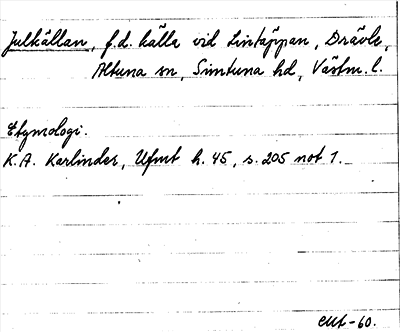 Julkällan, f.d. källa vid Lintäppan, Drävle,
Altuna sn, Simtuna hd, Västm. l.
Etymologi.
K.A. Karlinder, Ufmt h. 45, s. 205 not 1.
-60.